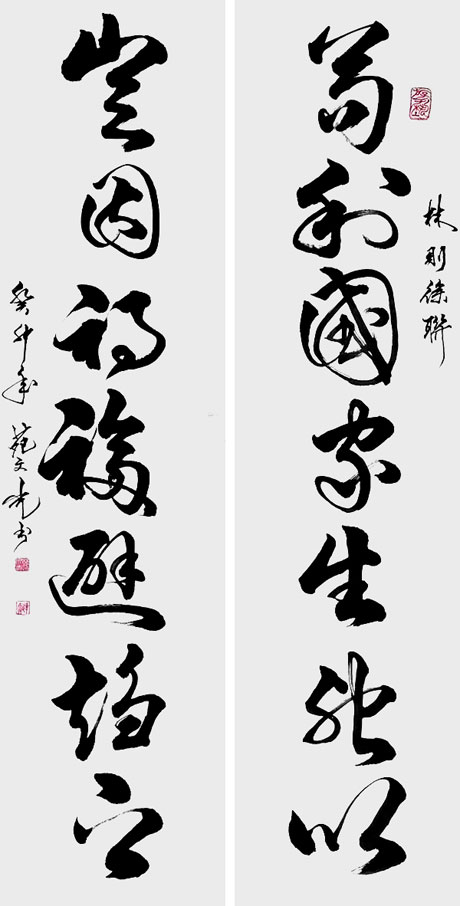 林則徐聯
苟利國家生死以
豈因禍福避趨之
癸卯年